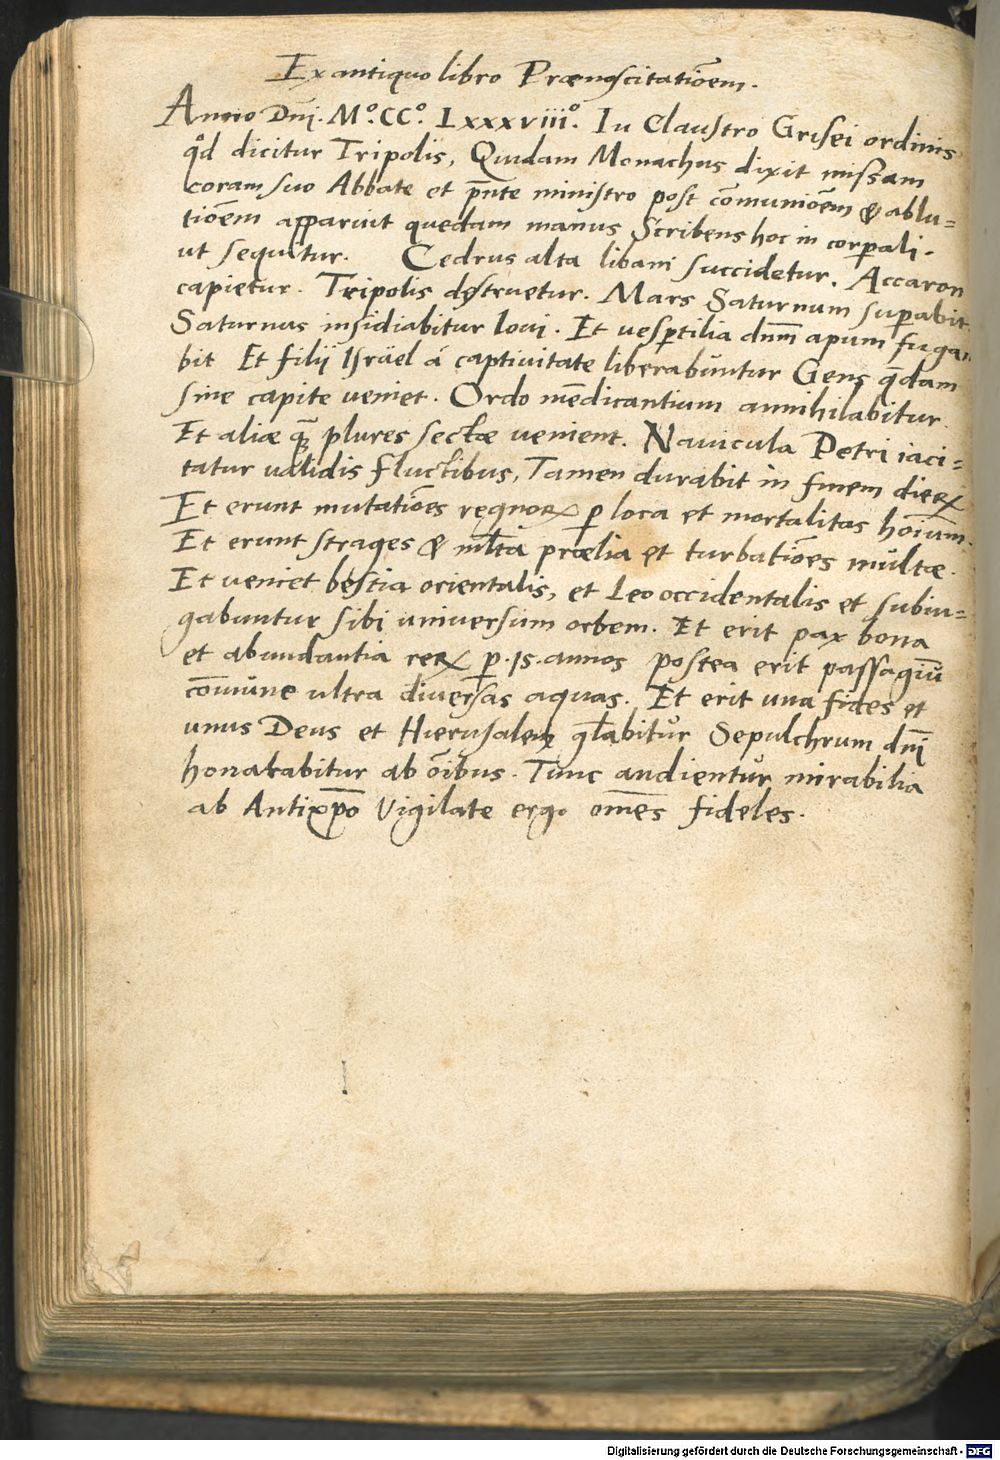 Ex antiquo libro Prænoscitatiōem.
Anno Dnī. M.º CC.º LXXXVIII.º In Claustro Grisei ordinis
qd dicitur Tripolis, Quidam Monachus dixit missam
coram suo Abbate et p̄nte ministro post cōmuniōem & ablu=
tiōem apparuit quedam manus Scribens hoc in corpali.
ut sequitur. Cedrus alta libani succidetur. Accaron
capietur. Tripolis destruetur. Mars Saturnum supabit.
Saturnus insidiabitur Ioui. Et vesptilia dnm̄ apum fuga
bit Et filij Isräel á captivitate liberabuntur Gens qdam
sine capite veniet. Ordo mēdicantium annihilabitur.
Et aliæ q̄ plures sectæ venient. Navicula Petri iaci=
tatur validis fluctibus, Tamen durabit in finem dierꝝ
Et erunt mutatiōes regnorꝝ p loca et mortalitas hoīum.
Et erunt strages & mlta prælia et turbatiōes multæ.
Et veniet bestia orientalis, et Leo occidentalis et subiu=
gabuntur sibi universum orbem. Et erit pax bona
et abundantia rerꝝ p. 15. annos postea erit passagiū
cōmune ultra diversas aquas. Et erit una fides et
unus Deus et Hierusalem glabitur Sepulchrum dnī
honorabitur ab ōibus. Tunc audientur mirabilia
ab Antixpo Vigilate ergo omēs fideles.
Digitalisierung gefördert durch die Deutsche Forschungsgemeinschaft - DFG